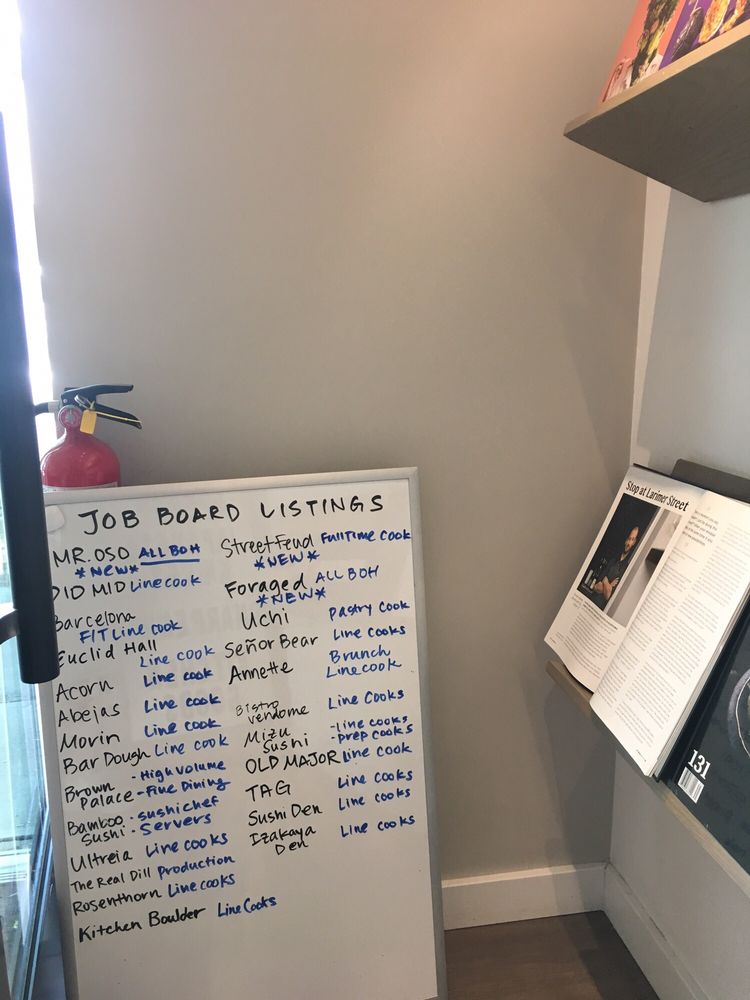 JOB BOARD LISTINGS
MR. OSO ALL BOH
*NEW*
DID MID Line cook
Barcelona
F/T Line cook
Euclid Hall Line cook
Acorn Line cook
Abejas Line cook
Morin Line cook
Bar Dough Line cook
Brown Palace - High volume
- Fine Dining
Bamboo Sushi - sushi chef
- Servers
Ultreia Line cooks
The Real Dill Production
Rosenthorn Line cooks
Kitchen Boulder Line Cooks
Street Feud Full Time Cook
*NEW*
Foraged ALL BOH
*NEW*
Uchi Pastry Cook
Señor Bear Line cooks
Annette Brunch
Line cook
Bistro Vendome Line Cooks
Mizu Sushi - line cooks
- prep cooks
OLD MAJOR Line cook
TAG Line cooks
Sushi Den Line cooks
Izakaya Den Line cooks
Stop at Larimer Street
131